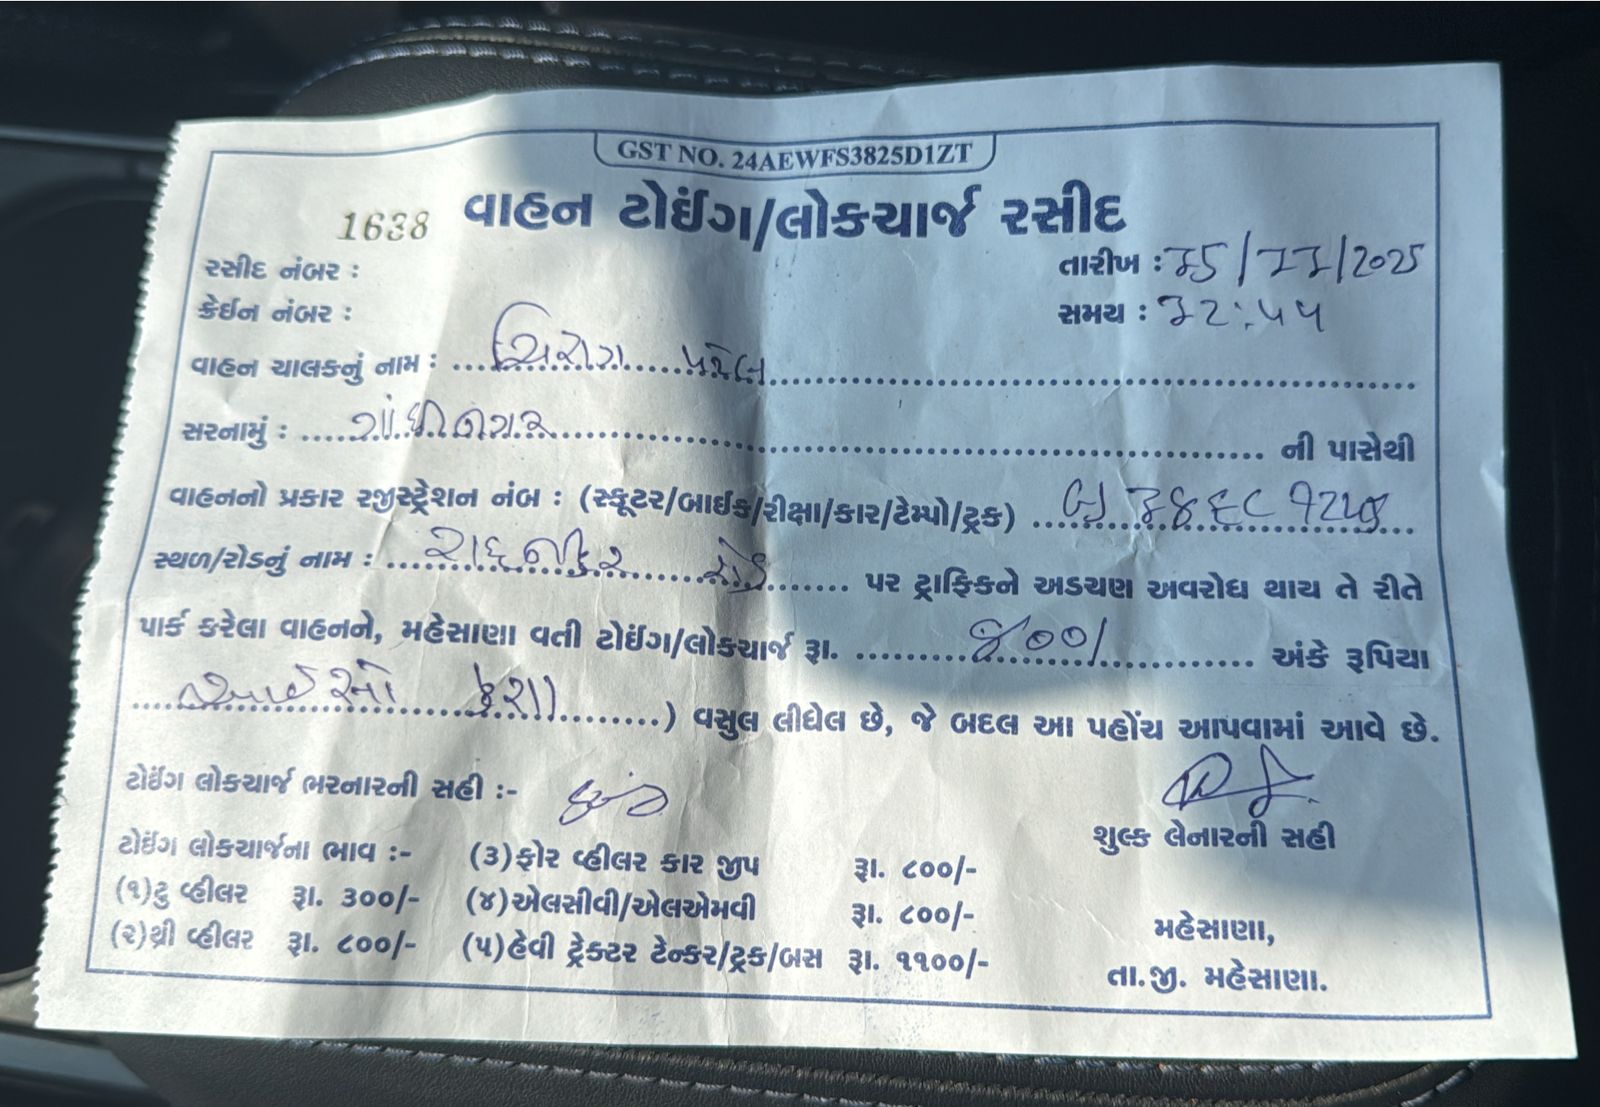 GST NO. 24AEWFS3825D1ZT
1638 વાહન ટોઈંગ/લોકચાર્જ રસીદ
રસીદ નંબર : તારીખ : 15/11/2025
ક્રેઈન નંબર : સમય : 12:55
વાહન ચાલકનું નામ : ચિરાગ પટેલ
સરનામું : ગાંધીનગર ની પાસેથી
વાહનનો પ્રકાર રજીસ્ટ્રેશન નંબ : (સ્કૂટર/બાઈક/રીક્ષા/કાર/ટેમ્પો/ટ્રક)
સ્થળ/રોડનું નામ : રાધનપુર રોડ પર ટ્રાફિકને અડચણ અવરોધ થાય તે રીતે
પાર્ક કરેલા વાહનને, મહેસાણા વતી ટોઈંગ/લોકચાર્જ રૂા. ૮૦૦/ અંકે રૂપિયા
) વસુલ લીધેલ છે, જે બદલ આ પહોંચ આપવામાં આવે છે.
ટોઈંગ લોકચાર્જ ભરનારની સહી :-
શુલ્ક લેનારની સહી
ટોઈંગ લોકચાર્જના ભાવ :- (૩)ફોર વ્હીલર કાર જીપ રૂા. ૮૦૦/-
(૧)ટુ વ્હીલર રૂા. ૩૦૦/- (૪)એલસીવી/એલએમવી રૂા. ૮૦૦/- મહેસાણા,
(૨)થ્રી વ્હીલર રૂા. ૮૦૦/- (૫)હેવી ટ્રેક્ટર ટેન્કર/ટ્રક/બસ રૂા. ૧૧૦૦/- તા.જી. મહેસાણા.